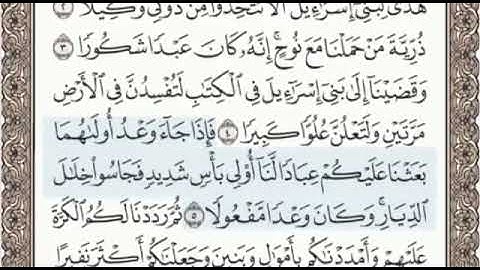 هُدًى لِّبَنِىٓ إِسْرَٰٓءِيلَ أَلَّا تَتَّخِذُوا۟ مِن دُونِى وَكِيلًا ٢
ذُرِّيَّةَ مَنْ حَمَلْنَا مَعَ نُوحٍ ۚ إِنَّهُۥ كَانَ عَبْدًا شَكُورًا ٣
وَقَضَيْنَآ إِلَىٰ بَنِىٓ إِسْرَٰٓءِيلَ فِى ٱلْكِتَٰبِ لَتُفْسِدُنَّ فِى ٱلْأَرْضِ
مَرَّتَيْنِ وَلَتَعْلُنَّ عُلُوًّا كَبِيرًا ٤ فَإِذَا جَآءَ وَعْدُ أُولَىٰهُمَا
بَعَثْنَا عَلَيْكُمْ عِبَادًا لَّنَآ أُو۟لِى بَأْسٍ شَدِيدٍ فَجَاسُوا۟ خِلَٰلَ
ٱلدِّيَارِ ۚ وَكَانَ وَعْدًا مَّفْعُولًا ٥ ثُمَّ رَدَدْنَا لَكُمُ ٱلْكَرَّةَ
عَلَيْهِمْ وَأَمْدَدْنَٰكُم بِأَمْوَٰلٍ وَبَنِينَ وَجَعَلْنَٰكُمْ أَكْثَرَ نَفِيرًا